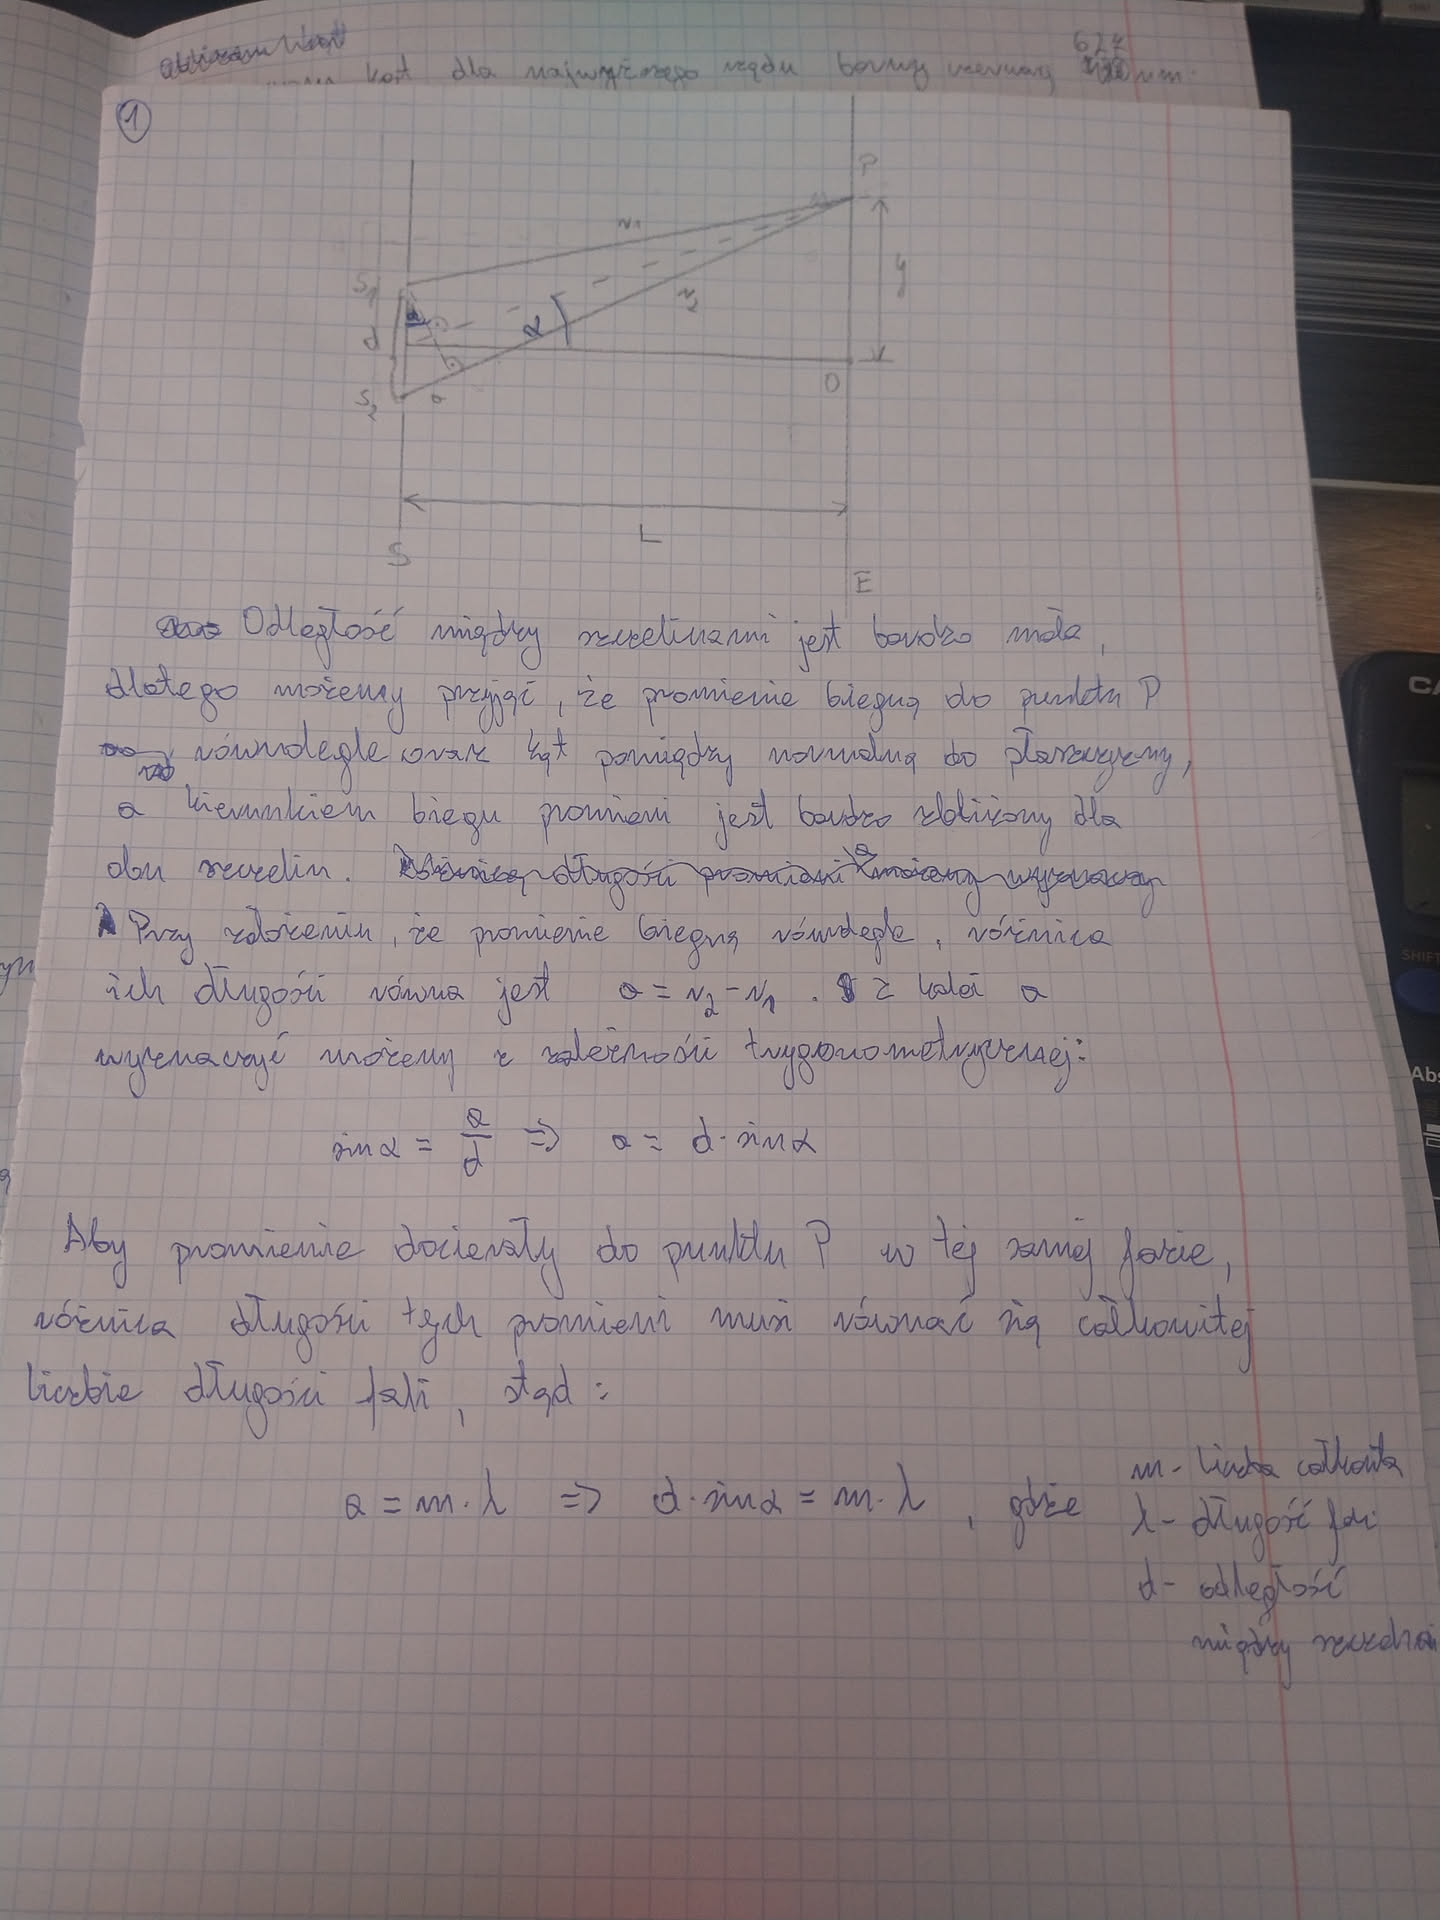 kąt dla najwyższego rzędu barwy czerwonej 627 nm.
1
P
r1
S1
α
y
r2
d
α
O
S2
a
L
S
E
Odległość między szczelinami jest bardzo mała,
dlatego możemy przyjąć, że promienie biegną do punktu P
równolegle oraz kąt pomiędzy normalną do płaszczyzny,
a kierunkiem biegu promieni jest bardzo zbliżony dla
obu szczelin.
Przy założeniu, że promienie biegną równolegle, różnica
ich długości równa jest a = r2 - r1 . Z kolei a
wyznaczyć możemy z zależności trygonometrycznej:
sin α = a/d => a = d · sin α
Aby promienie docierały do punktu P w tej samej fazie,
różnica długości tych promieni musi równać się całkowitej
liczbie długości fali, stąd :
a = m · λ => d · sin α = m · λ , gdzie
m - liczba całkowita
λ - długość fali
d - odległość
między
CA
SHIFT
Abs